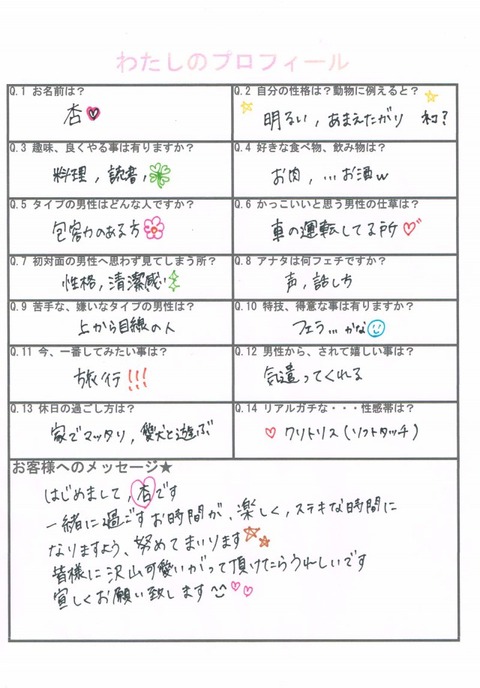 わたしのプロフィール
Q.1 お名前は?
杏
Q.2 自分の性格は?動物に例えると?
明るい,あまえたがり ネコ?
Q.3 趣味、良くやる事は有りますか?
料理,読書,
Q.4 好きな食べ物、飲み物は?
お肉,...お酒w
Q.5 タイプの男性はどんな人ですか?
包容力のある方
Q.6 かっこいいと思う男性の仕草は?
車の運転してる所
Q.7 初対面の男性へ思わず見てしまう所?
性格,清潔感
Q.8 アナタは何フェチですか?
声,話し方
Q.9 苦手な、嫌いなタイプの男性は?
上から目線の人
Q.10 特技、得意な事は有りますか?
フェラ...かな
Q.11 今、一番してみたい事は?
旅行!!!
Q.12 男性から、されて嬉しい事は?
気遣ってくれる
Q.13 休日の過ごし方は?
家でマッタリ,愛犬と遊ぶ
Q.14 リアルガチな・・・性感帯は?
クリトリス(ソフトタッチ)
お客様へのメッセージ★
はじめまして,杏です
一緒に過ごすお時間が、楽しく,ステキな時間に
なりますよう、努めてまいります
皆様に沢山可愛いがって頂けたらうれしいです
宜しくお願い致します